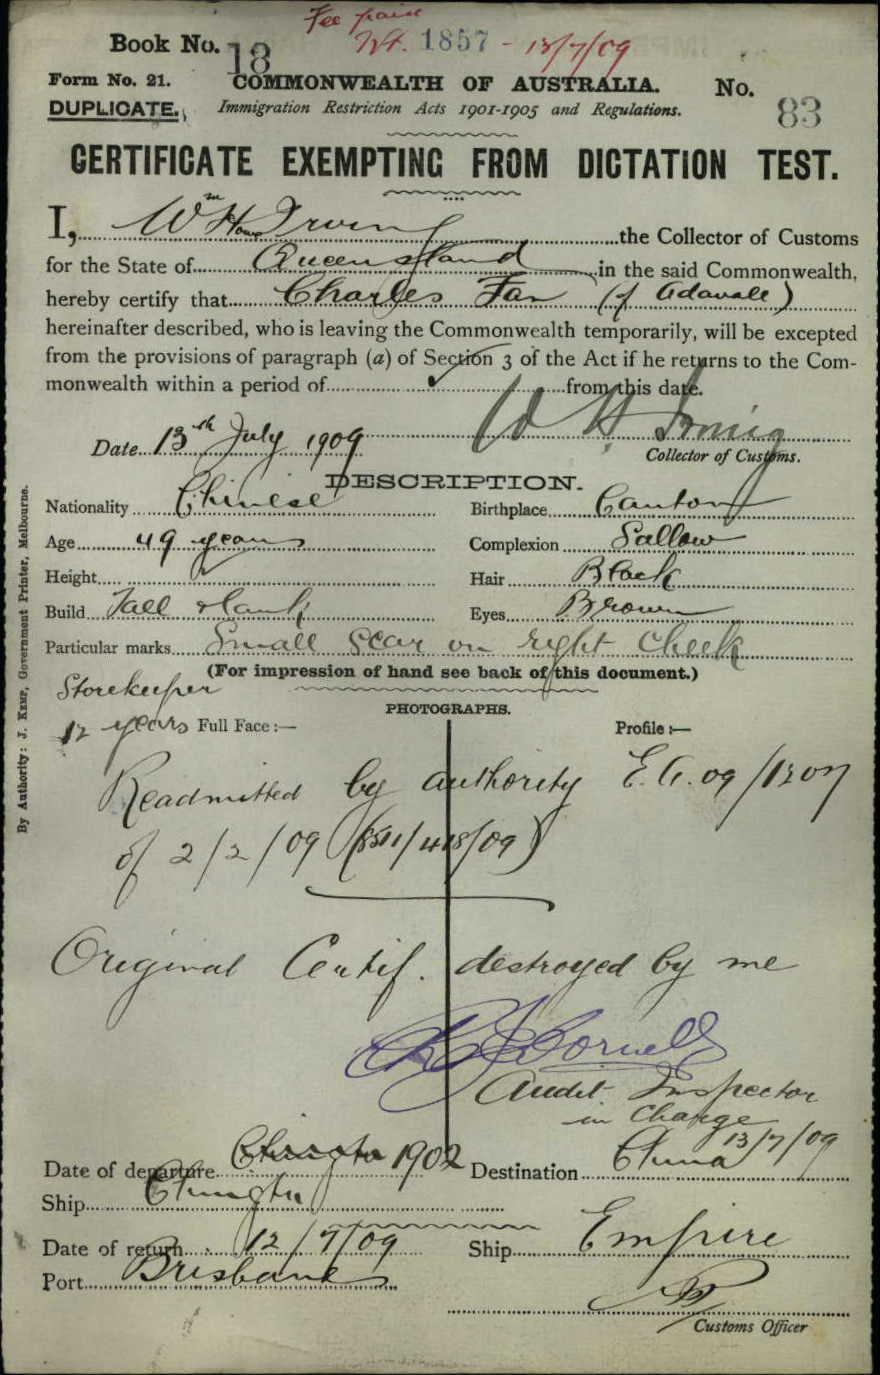 Fee paid
Book No. 13 1857 - 13/7/09
Form No. 21. COMMONWEALTH OF AUSTRALIA. No. 83
DUPLICATE. Immigration Restriction Acts 1901-1905 and Regulations.
CERTIFICATE EXEMPTING FROM DICTATION TEST.
I, Wm Irving the Collector of Customs
for the State of Queensland in the said Commonwealth,
hereby certify that Charles Fan (of Adavale)
hereinafter described, who is leaving the Commonwealth temporarily, will be excepted
from the provisions of paragraph (a) of Section 3 of the Act if he returns to the Com-
monwealth within a period of from this date.
W H Irving
Date 13th July 1909
Collector of Customs.
DESCRIPTION.
Nationality Chinese Birthplace Canton
Age 49 years Complexion Sallow
Height Hair Black
Build Tall & lank Eyes Brown
Particular marks Small scar on right cheek
(For impression of hand see back of this document.)
Storekeeper
PHOTOGRAPHS.
12 years Full Face:— Profile:—
Readmitted by authority E.A. 09/1207
of 2/2/09
Original Certif. destroyed by me
Audit Inspector
in Charge
13/7/09
Date of departure 1902 Destination China
Ship Chingtu
Date of return 12/7/09 Ship Empire
Port Brisbane
Customs Officer
By Authority: J. KEMP, Government Printer, Melbourne.